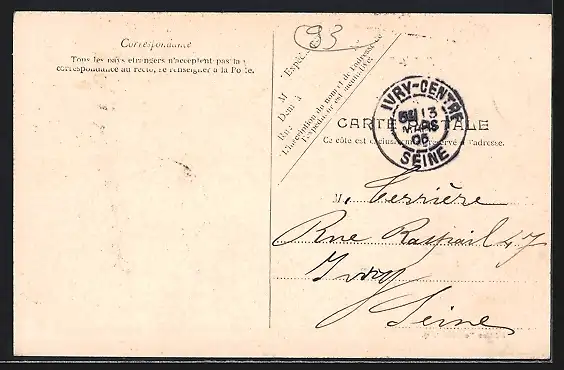 Correspondance
Tous les pays étrangers n'acceptent pas la
correspondance au recto, se renseigner à la Poste.
93
M
Expéd
Dem' à
Rue
L'inscription du nom et de l'adresse de
l'Expéditeur est facultative
IVRY-CENTRE
13
MARS
05
SEINE
CARTE POSTALE
Ce côté est exclusivement réservé à l'adresse.
M. Terrière
Rue Raspail 47
Ivry
Seine